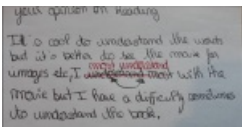 your opinion on Reading
It is cool to understand the words
but it's better to see the movie for
most understand
images etc, I understand most with the
movie but I have a difficulty sometimes
to understand the book.